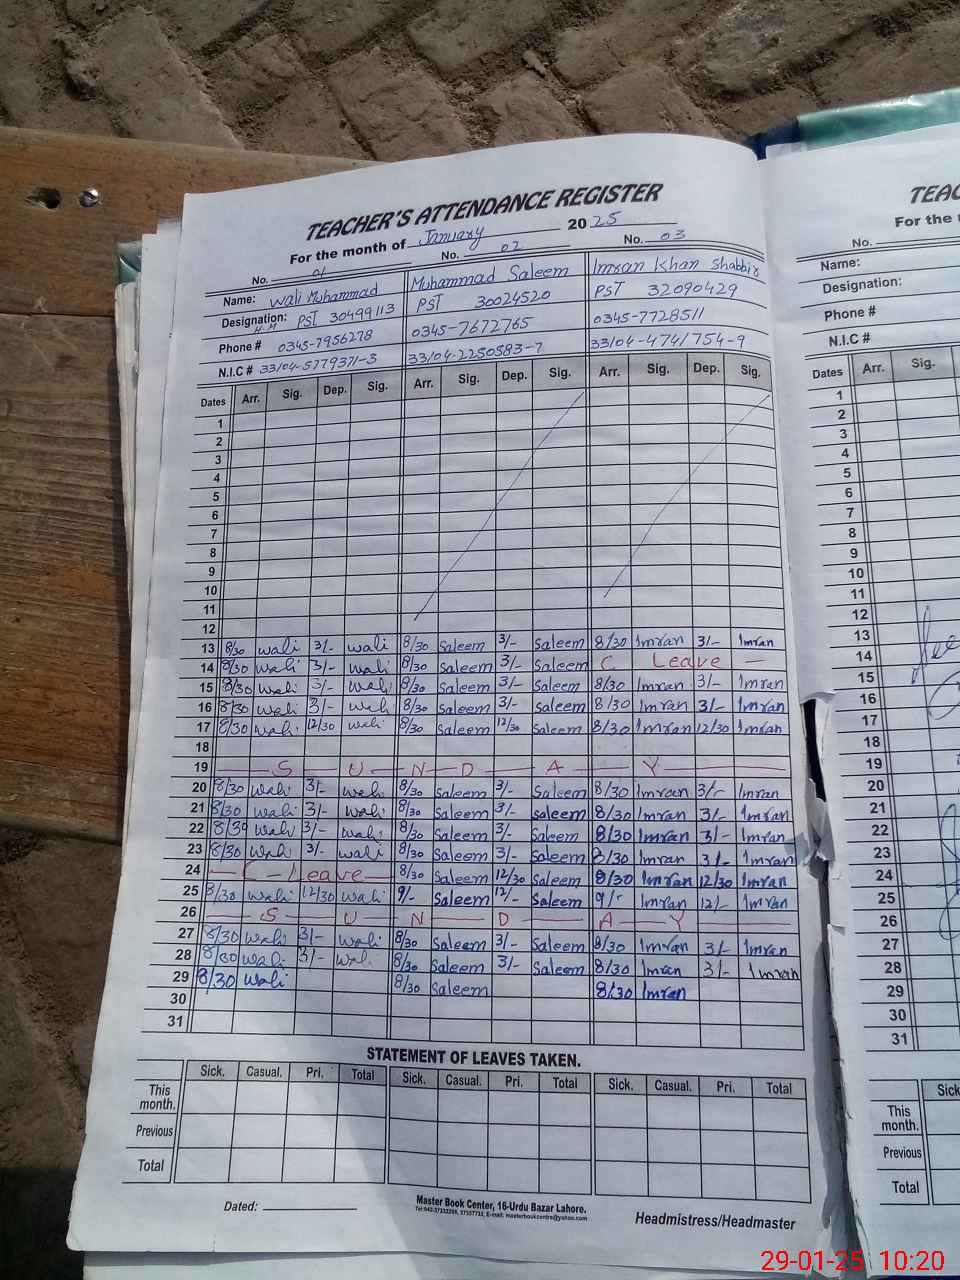 TEACHER'S ATTENDANCE REGISTER
For the month of January 2025
No. 01 No. 02 No. 03
Name: Wali Muhammad Muhammad Saleem Imran Khan Shabbir
Designation: H.M PST 30499113 PST 30024520 PST 32090429
Phone # 0345-7956278 0345-7672765 0345-7728511
N.I.C # 33104-5779371-3 33104-2250583-7 33104-4741754-9
Dates Arr. Sig. Dep. Sig. Arr. Sig. Dep. Sig. Arr. Sig. Dep. Sig.
1
2
3
4
5
6
7
8
9
10
11
12
13 8/30 Wali 3/- Wali 8/30 Saleem 3/- Saleem 8/30 Imran 3/- Imran
14 8/30 Wali 3/- Wali 8/30 Saleem 3/- Saleem C Leave —
15 8/30 Wali 3/- Wali 8/30 Saleem 3/- Saleem 8/30 Imran 3/- Imran
16 8/30 Wali 3/- Wali 8/30 Saleem 3/- Saleem 8/30 Imran 3/- Imran
17 8/30 Wali 12/30 Wali 8/30 Saleem 12/30 Saleem 8/30 Imran 12/30 Imran
18
19 — S — U — N — D — A — Y —
20 8/30 Wali 3/- Wali 8/30 Saleem 3/- Saleem 8/30 Imran 3/- Imran
21 8/30 Wali 3/- Wali 8/30 Saleem 3/- Saleem 8/30 Imran 3/- Imran
22 8/30 Wali 3/- Wali 8/30 Saleem 3/- Saleem 8/30 Imran 3/- Imran
23 8/30 Wali 3/- Wali 8/30 Saleem 3/- Saleem 8/30 Imran 3/- Imran
24 — C — Leave — 8/30 Saleem 12/30 Saleem 8/30 Imran 12/30 Imran
25 8/30 Wali 12/30 Wali 9/- Saleem 12/- Saleem 9/- Imran 12/- Imran
26 — S — U — N — D — A — Y —
27 8/30 Wali 3/- Wali 8/30 Saleem 3/- Saleem 8/30 Imran 3/- Imran
28 8/30 Wali 3/- Wali 8/30 Saleem 3/- Saleem 8/30 Imran 3/- Imran
29 8/30 Wali 8/30 Saleem 8/30 Imran
30
31
STATEMENT OF LEAVES TAKEN.
Sick. Casual. Pri. Total Sick. Casual. Pri. Total Sick. Casual. Pri. Total
This month.
Previous
Total
Dated:
Master Book Center, 16-Urdu Bazar Lahore.
Headmistress/Headmaster
TEAC
For the
No.
Name:
Designation:
Phone #
N.I.C #
Dates Arr. Sig.
1
2
3
4
5
6
7
8
9
10
11
12
13
14
15
16
17
18
19
20
21
22
23
24
25
26
27
28
29
30
31
Sick
This month.
Previous
Total
29-01-25 10:20